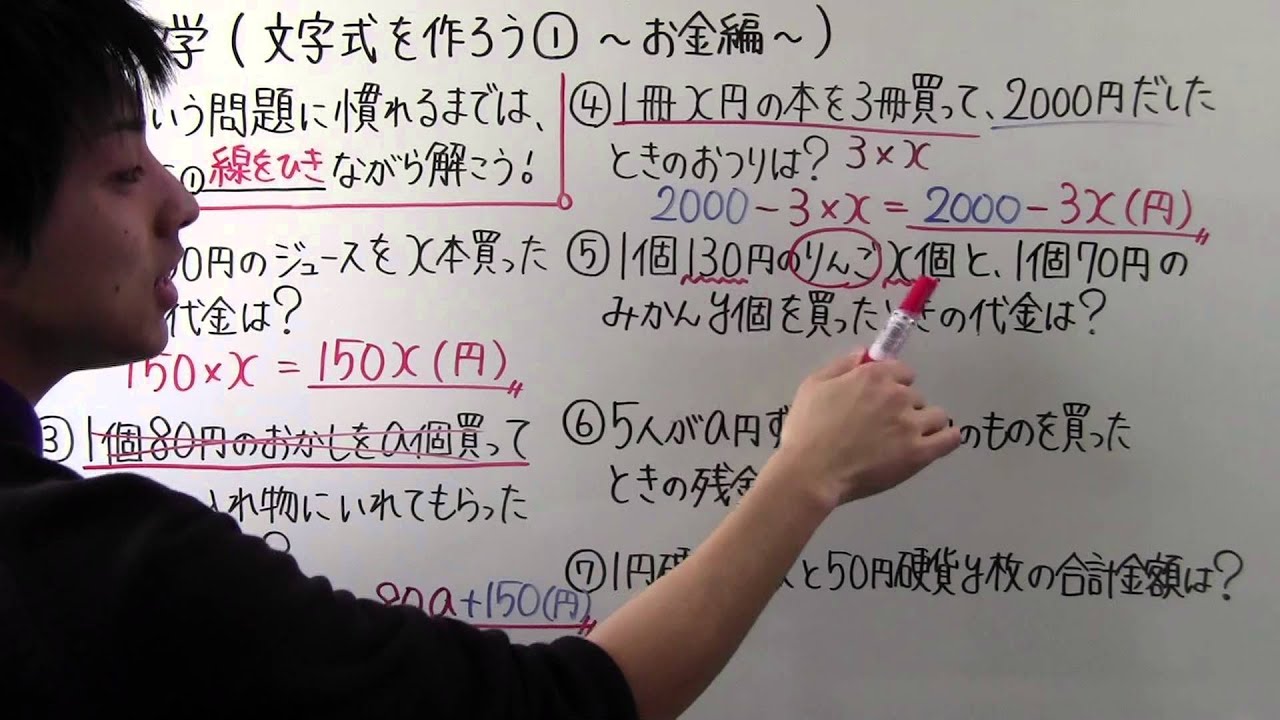 学(文字式を作ろう① ～お金編～)
いう問題に慣れるまでは、
① 線をひきながら解こう!
0円のジュースをx本買った
代金は?
150×x = 150x(円)
③ 1個80円のおかしをa個買って
れ物にいれてもらった
?
80a+150(円)
④ 1冊x円の本を3冊買って、2000円だした
ときのおつりは? 3×x
2000-3×x = 2000-3x(円)
⑤ 1個130円のりんごx個と、1個70円の
みかんy個を買ったときの代金は?
⑥ 5人がa円ず のものを買った
ときの残金
⑦ 1円硬 と50円硬貨y枚の合計金額は?